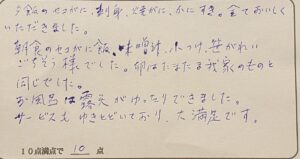 夕飯のセコがに、刺身、焼がに、かにすき、全ておいしく
いただきました。
朝食のセコがに飯、味噌汁、小つけ、笹がれい
ごちそう様でした。卵はたまたま我家のものと
同じでした。
お風呂は露天がゆったりできました。
サービスもゆきとどいており、大満足です。
10点満点で 10 点